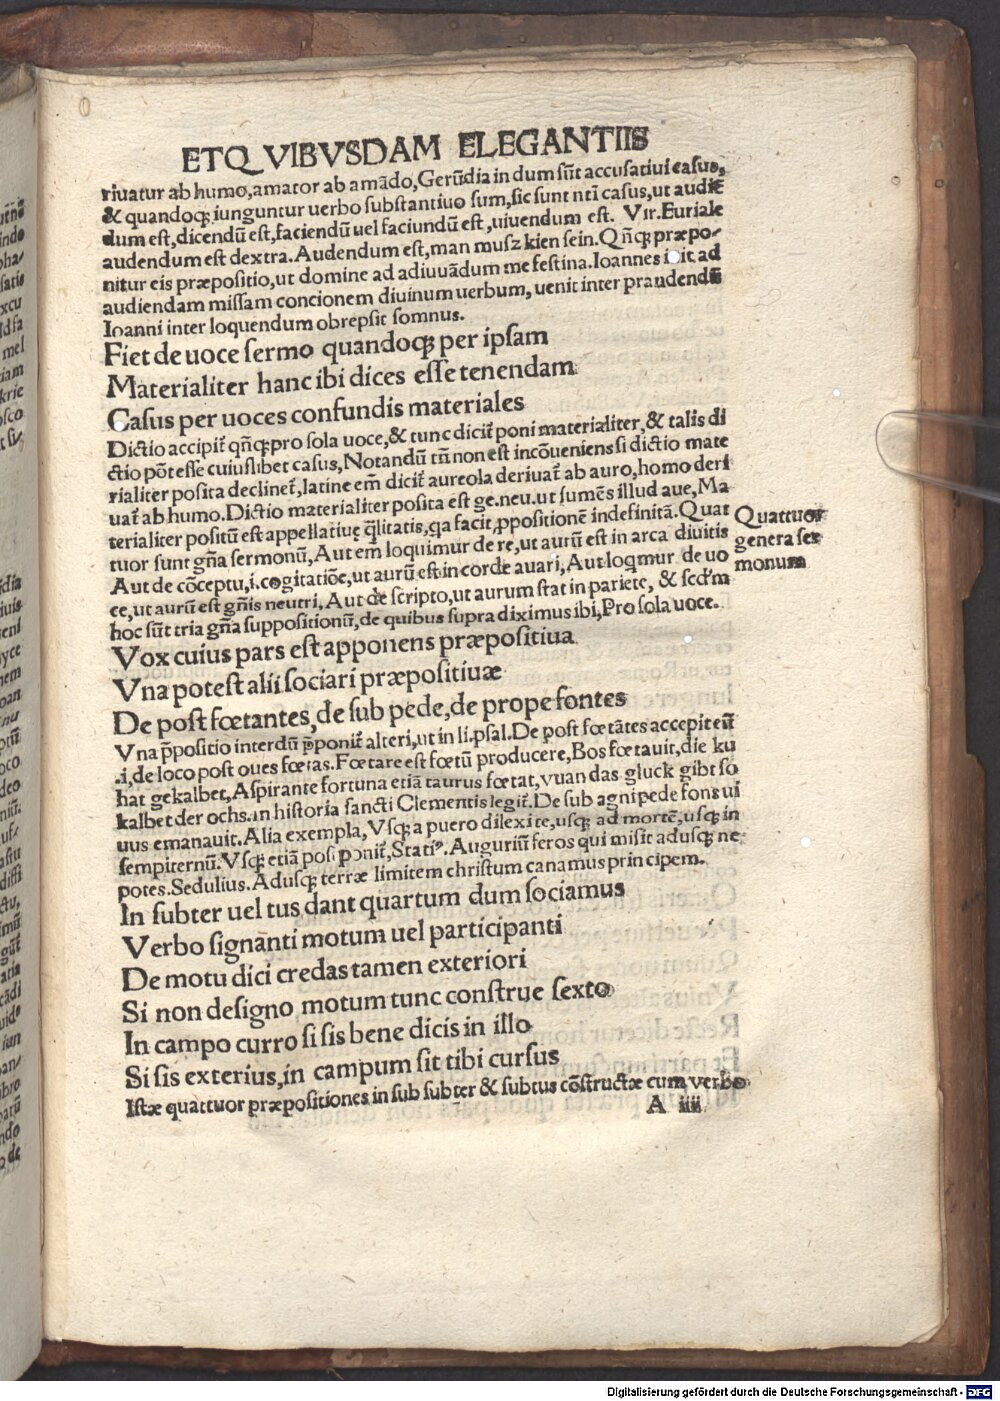 ETQVIBVSDAM ELEGANTIIS
riuatur ab humo,amator ab amādo,Gerūdia in dum sūt accusatiui casus,
& quandoqꝫ iunguntur uerbo substantiuo sum,sic sunt nti casus,ut audiē
dum est,dicendū est,faciendū uel faciundū est,uiuendum est. Vir.Euriale
audendum est dextra.Audendum est,man musz kien sein.Qñqꝫ præpo/
nitur eis præpositio,ut domine ad adiuuādum me festina.Ioannes iuit ad
audiendam missam concionem diuinum uerbum,uenit inter prandendū
Ioanni inter loquendum obrepsit somnus.
Fiet de uoce sermo quandoqꝫ per ipsam
Materialiter hanc ibi dices esse tenendam
Casus per uoces confundis materiales
Dictio accipit̃ qñqꝫ pro sola uoce,& tunc dicit̃ poni materialiter,& talis di
ctio pōt esse cuiuslibet casus,Notandū tñ non est incōueniens si dictio mate
rialiter posita declinet̃,latine em̄ dicit̃ aureola deriuat̃ ab auro,homo deri
uat̃ ab humo.Dictio materialiter posita est ge.neu.ut sumēs illud aue,Ma
terialiter positū est appellatiuę q̃litatis,qa facit ꝓpositionē indefinitā.Quat
tuor sunt gña sermonū,Aut em̄ loquimur de re,ut aurū est in arca diuitis
Aut de cōceptu,i.cogitatiōe,ut aurū est in corde auari,Aut loqmur de uo
ce,ut aurū est gñis neutri,Aut de scripto,ut aurum stat in pariete, & scd'm
hoc sūt tria gña suppositionū,de quibus supra diximus ibi,Pro sola uoce.
Quattuor
genera ser
monum
Vox cuius pars est apponens præpositiua
Vna potest alii sociari præpositiuæ
De post fœtantes,de sub pede,de prope fontes
Vna p̄positio interdū p̄ponit̃ alteri,ut in li.psal.De post fœtātes accepit eū
.i,de loco post oues fœtas.Fœtare est fœtū producere,Bos fœtauit,die ku
hat gekalbet,Aspirante fortuna etiā taurus fœtat,vuan das gluck gibt so
kalbet der ochs.in historia sancti Clementis legit̃.De sub agni pede fons ui
uus emanauit.Alia exempla,Vsqꝫ a puero dilexi te,usqꝫ ad mortē,usqꝫ in
sempiternū.Vsqꝫ etiā postponit̃,Statiꝰ.Auguriū feros qui misit adusqꝫ ne
potes.Sedulius.Adusqꝫ terræ limitem christum canamus principem.
In subter uel tus dant quartum dum sociamus
Verbo signanti motum uel participanti
De motu dici credas tamen exteriori
Si non designo motum tunc construe sexto
In campo curro si sis bene dicis in illo
Si sis exterius,in campum sit tibi cursus
Istæ quattuor præpositiones in sub subter & subtus cōstructæ cum verbo
A iiii
Digitalisierung gefördert durch die Deutsche Forschungsgemeinschaft - DFG